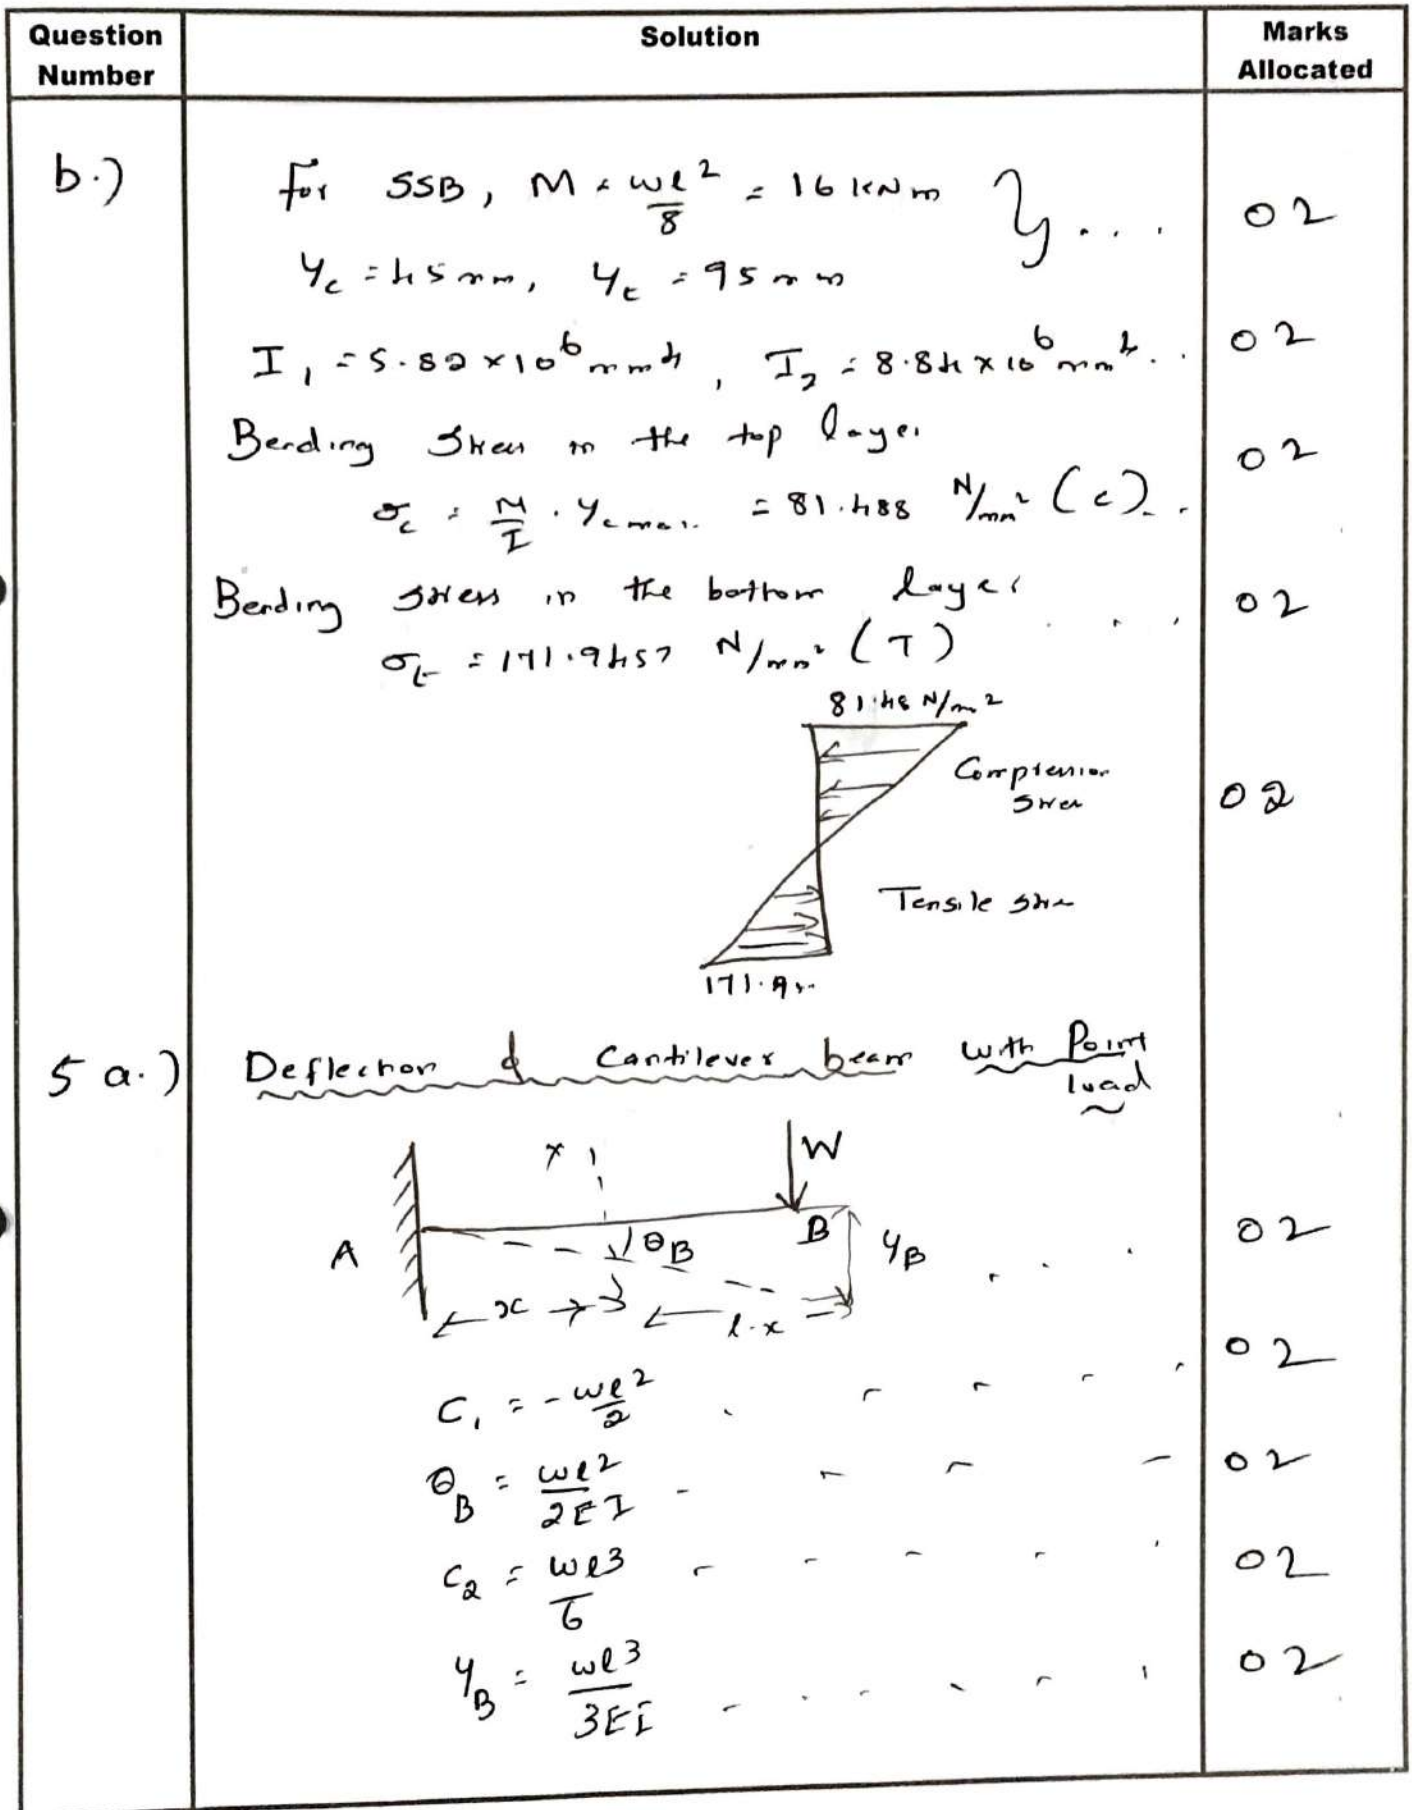 Question Number
Solution
Marks Allocated
b.)
For SSB, M = wl²/8 = 16 kNm } ... 02
Yc = 45 mm, Yt = 95 mm
I₁ = 5.82 × 10⁶ mm⁴, I₂ = 8.84 × 10⁶ mm⁴.. 02
Bending stress in the top layer
σc = M/I . Yc max. = 81.488 N/mm² (c).. 02
Bending stress in the bottom layer ... 02
σt = 171.9457 N/mm² (T)
81.48 N/m²
Compression stress
02
Tensile stress
171.9
5 a.) Deflection of Cantilever beam with Point load
x W
A θB B yB ... 02
x l-x
C₁ = -wl²/2 02
θB = wl²/2EI 02
C₂ = wl³/6 02
yB = wl³/3EI 02